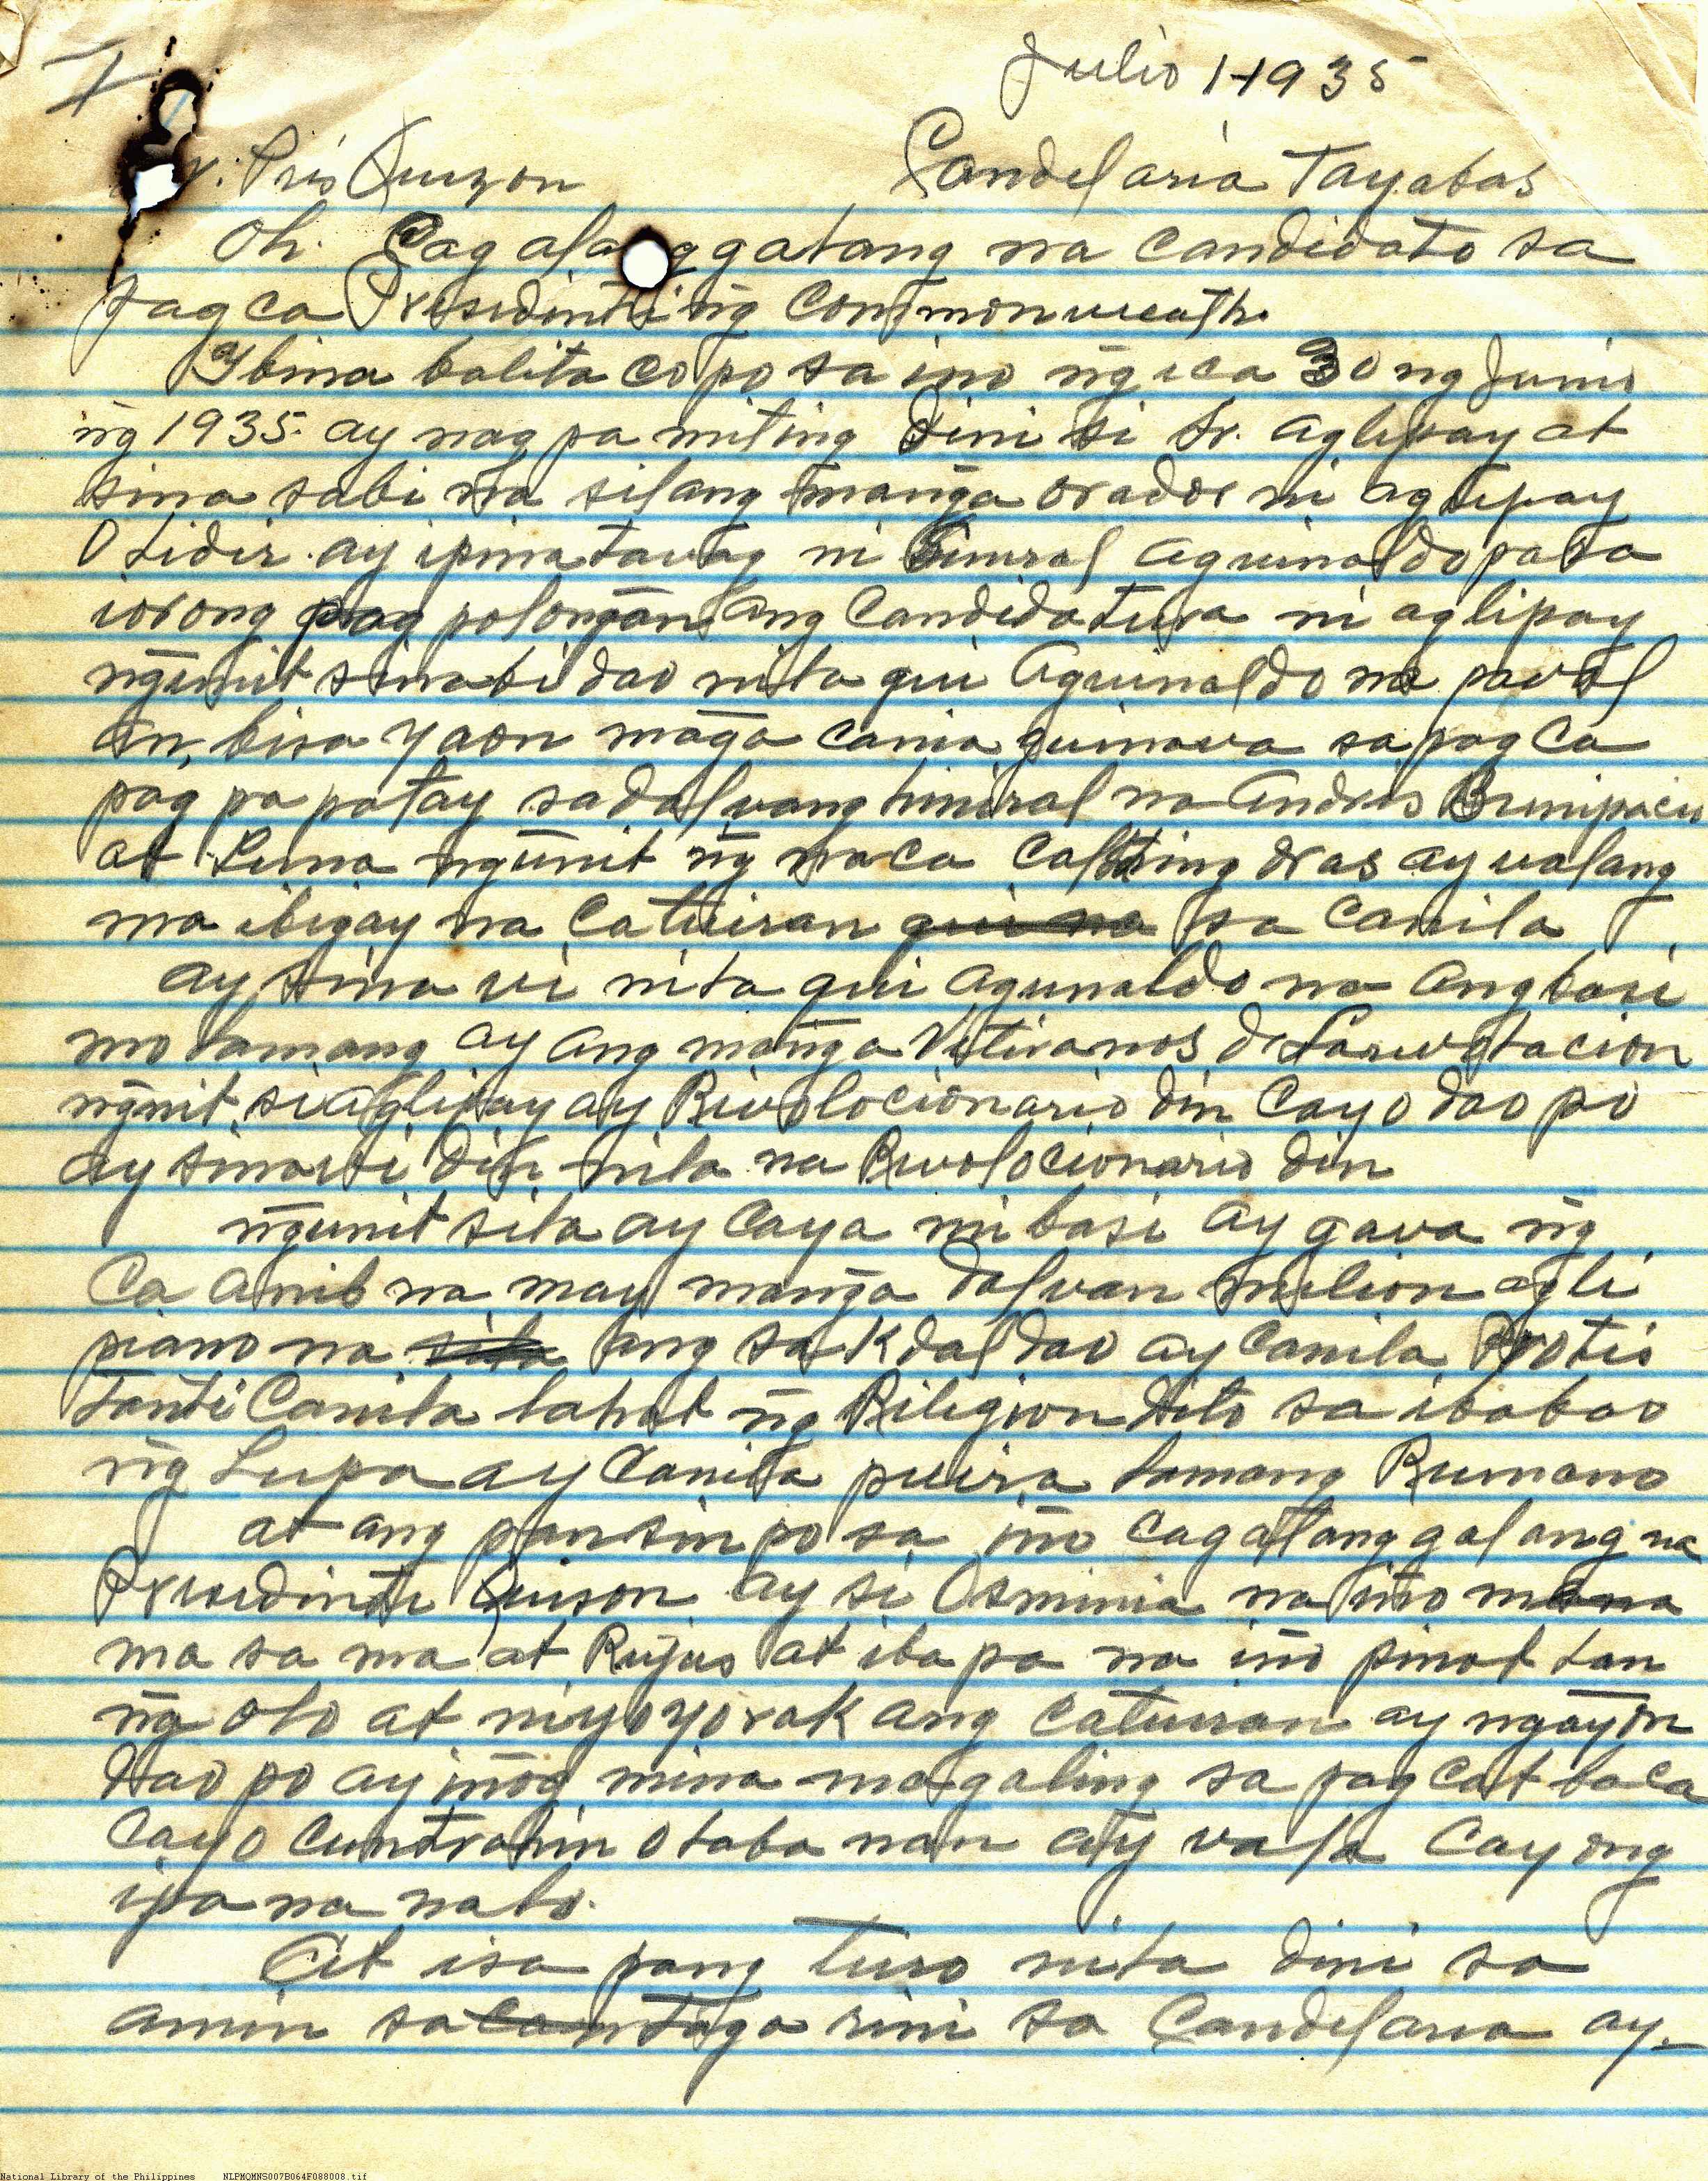 Julio 1-1935
Pris Quezon Candelaria Tayabas
Oh. Cag ala ggalang na candidato sa
pag ca Presidinti ng Commonwealth.
Ybina balita co po sa ino ng ica 30 ng Junio
ng 1935. ay nag pa miting dini si Sr. Aglipay at
sina sabi na silang manga orador ni Aglipay
O Lidir. ay ipina tawag ni Ginral Aguinaldo para
iorong pag polongan ang Candidatura ni aglipay
ngunit sinabi dao nila qui Aguinaldo na
bisa yaon maga cania guinava sa pag ca
pag pa patay sa dalvang hiniral na Andris Bunipacio
at Luna ngunit ng maca ing oras ay valang
ma ibigay na Catuiran qui na sa Canila
ay sina vi nila qui Agunaldo na ang basi
mo lamang ay ang manga Vitiranos de
ngunit si Aglipay ay Rivolocionario din Cayo dao po
ay sinavi din nila na Rivolocionario din
ngunit sila ay Caya mi basi ay gava ng
Ca anib na may manga dalvan milion agli
piano na sila ang sakdal dao ay Canila Protis
tanti Canila lahat ng Riligion dito sa ibabao
ng Lupa ay Canila puira lamang Rumano
at ang pansin po sa ino cagalang galang na
Prisidinti Quison ay si Osminia na ino mana
ma sa ma at Rujas at iba pa na ino pinot lan
ng olo at niyoyorak ang catuiran ay ngayon
dao po ay inog mina magaling sa pag cat baca
Cayo Cuntrahin o laba nan ay vala Cayong
ipa na nalo.
At isa pang turo nila dini sa
amin sa taga rini sa Candelaria ay-
National Library of the Philippines NLPMQMNS007B064F088008.tif